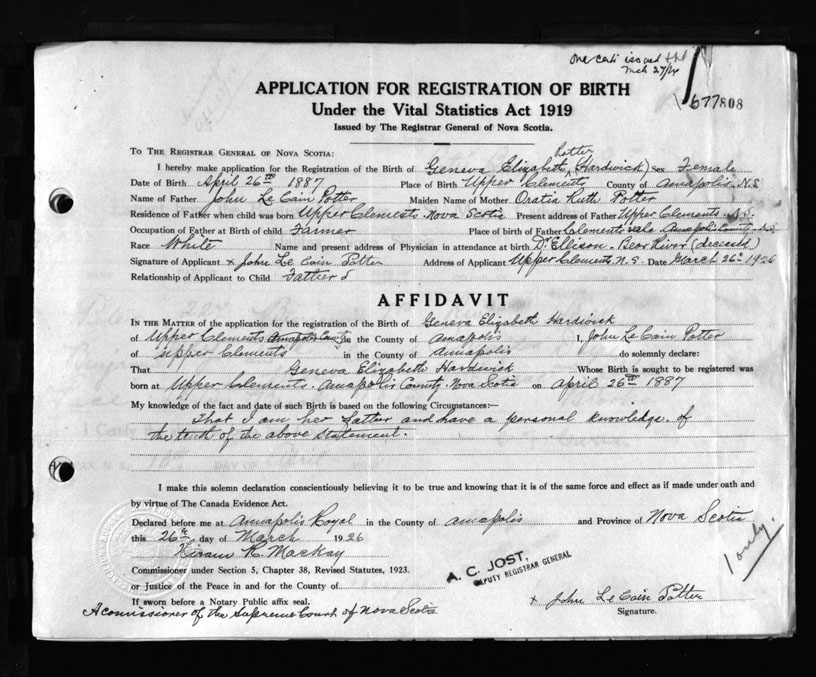 one cert issued
mch 27/
677808
APPLICATION FOR REGISTRATION OF BIRTH
Under the Vital Statistics Act 1919
Issued by The Registrar General of Nova Scotia.
TO THE REGISTRAR GENERAL OF NOVA SCOTIA:
Potter
I hereby make application for the Registration of the Birth of Geneva Elizabeth (Hardwick) Sex Female
Date of Birth April 26th 1887 Place of Birth Upper Clements County of Annapolis N.S
Name of Father John Le Cain Potter Maiden Name of Mother Oratia Ruth Potter
Residence of Father when child was born Upper Clements Nova Scotia Present address of Father Upper Clements N.S.
Occupation of Father at Birth of child Farmer Place of birth of Father Clements vale Annapolis County N.S
Race White Name and present address of Physician in attendance at birth Dr Ellison - Bear River (deceased)
Signature of Applicant x John Le Cain Potter Address of Applicant Upper Clements N.S. Date March 26th 1926
Relationship of Applicant to Child Father
AFFIDAVIT
IN THE MATTER of the application for the registration of the Birth of Geneva Elizabeth Hardwick
of Upper Clements Annapolis County in the County of Annapolis I, John Le Cain Potter
of Upper Clements in the County of Annapolis do solemnly declare:
That Geneva Elizabeth Hardwick Whose Birth is sought to be registered was
born at Upper Clements. Annapolis County Nova Scotia on April 26th 1887
My knowledge of the fact and date of such Birth is based on the following Circumstances:—
That I am her father and have a personal knowledge of
the truth of the above statement.
I make this solemn declaration conscientiously believing it to be true and knowing that it is of the same force and effect as if made under oath and
by virtue of The Canada Evidence Act.
Declared before me at Annapolis Royal in the County of Annapolis and Province of Nova Scotia
this 26th day of March 1926
Hiram R. Mackay
Commissioner under Section 5, Chapter 38, Revised Statutes, 1923.
or Justice of the Peace in and for the County of
If sworn before a Notary Public affix seal.
A commissioner of the Supreme Court of Nova Scotia
A. C. JOST,
DEPUTY REGISTRAR GENERAL
1 only.
x John Le Cain Potter
Signature.